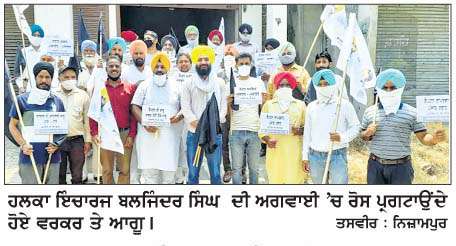 ਹਲਕਾ ਇਚਾਰਜ ਬਲਜਿੰਦਰ ਸਿੰਘ ਦੀ ਅਗਵਾਈ ’ਚ ਰੋਸ ਪ੍ਰਗਟਾਉਂਦੇ
ਹੋਏ ਵਰਕਰ ਤੇ ਆਗੂ। ਤਸਵੀਰ : ਨਿਜ਼ਾਮਪੁਰ